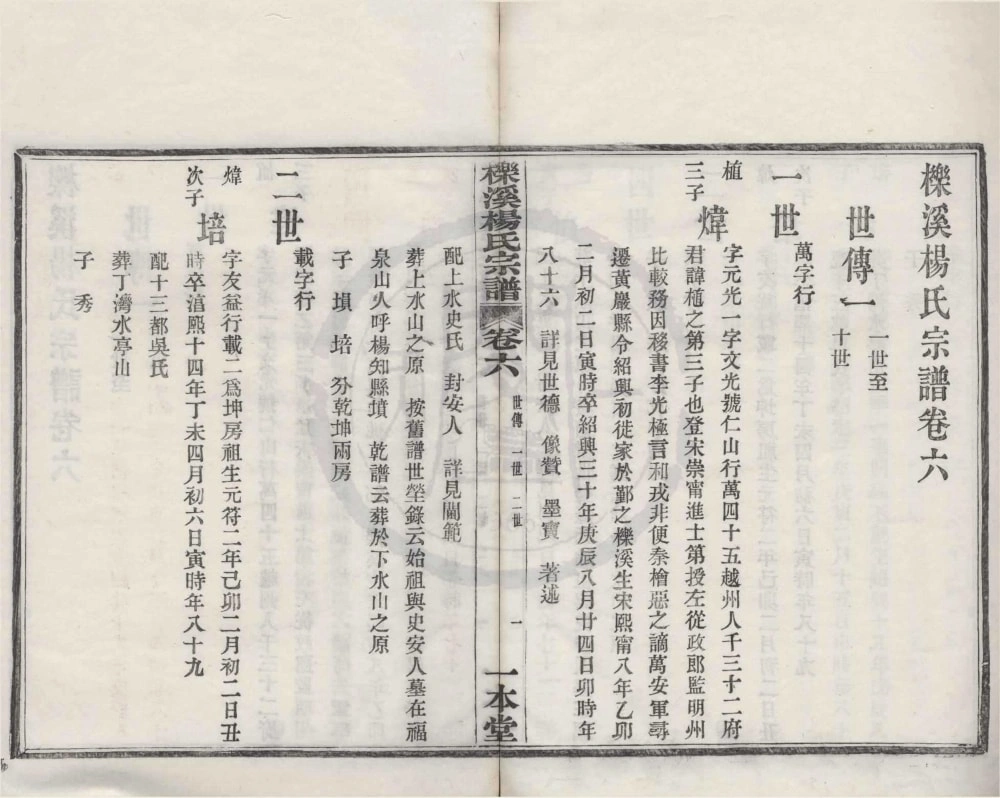 櫟溪楊氏宗譜卷六
世傳一 一世至
十世
一世 萬字行
植
三子
煒
字元光一字文光號仁山行萬四十五越州人千三十二府
君諱植之第三子也登宋崇甯進士第授左從政郎監明州
比較務因移書李光極言和戎非便秦檜惡之謫萬安軍尋
遷黃巖縣令紹興初徙家於鄞之櫟溪生宋熙甯八年乙卯
二月初二日寅時卒紹興三十年庚辰八月廿四日卯時年
八十六 詳見世德 像贊 墨寶 著述
櫟溪楊氏宗譜 卷六 世傳 一世 二世 一 一本堂
配上水史氏 封安人 詳見閫範
葬上水山之原 按舊譜世塋錄云始祖與史安人墓在福
泉山人呼楊知縣墳 乾譜云葬於下水山之原
子 塤 培 分乾坤兩房
二世 載字行
煒
次子
培
字友益行載二爲坤房祖生元符二年己卯二月初二日丑
時卒淳熙十四年丁未四月初六日寅時年八十九
配十三都吳氏
葬丁灣水亭山
子 秀